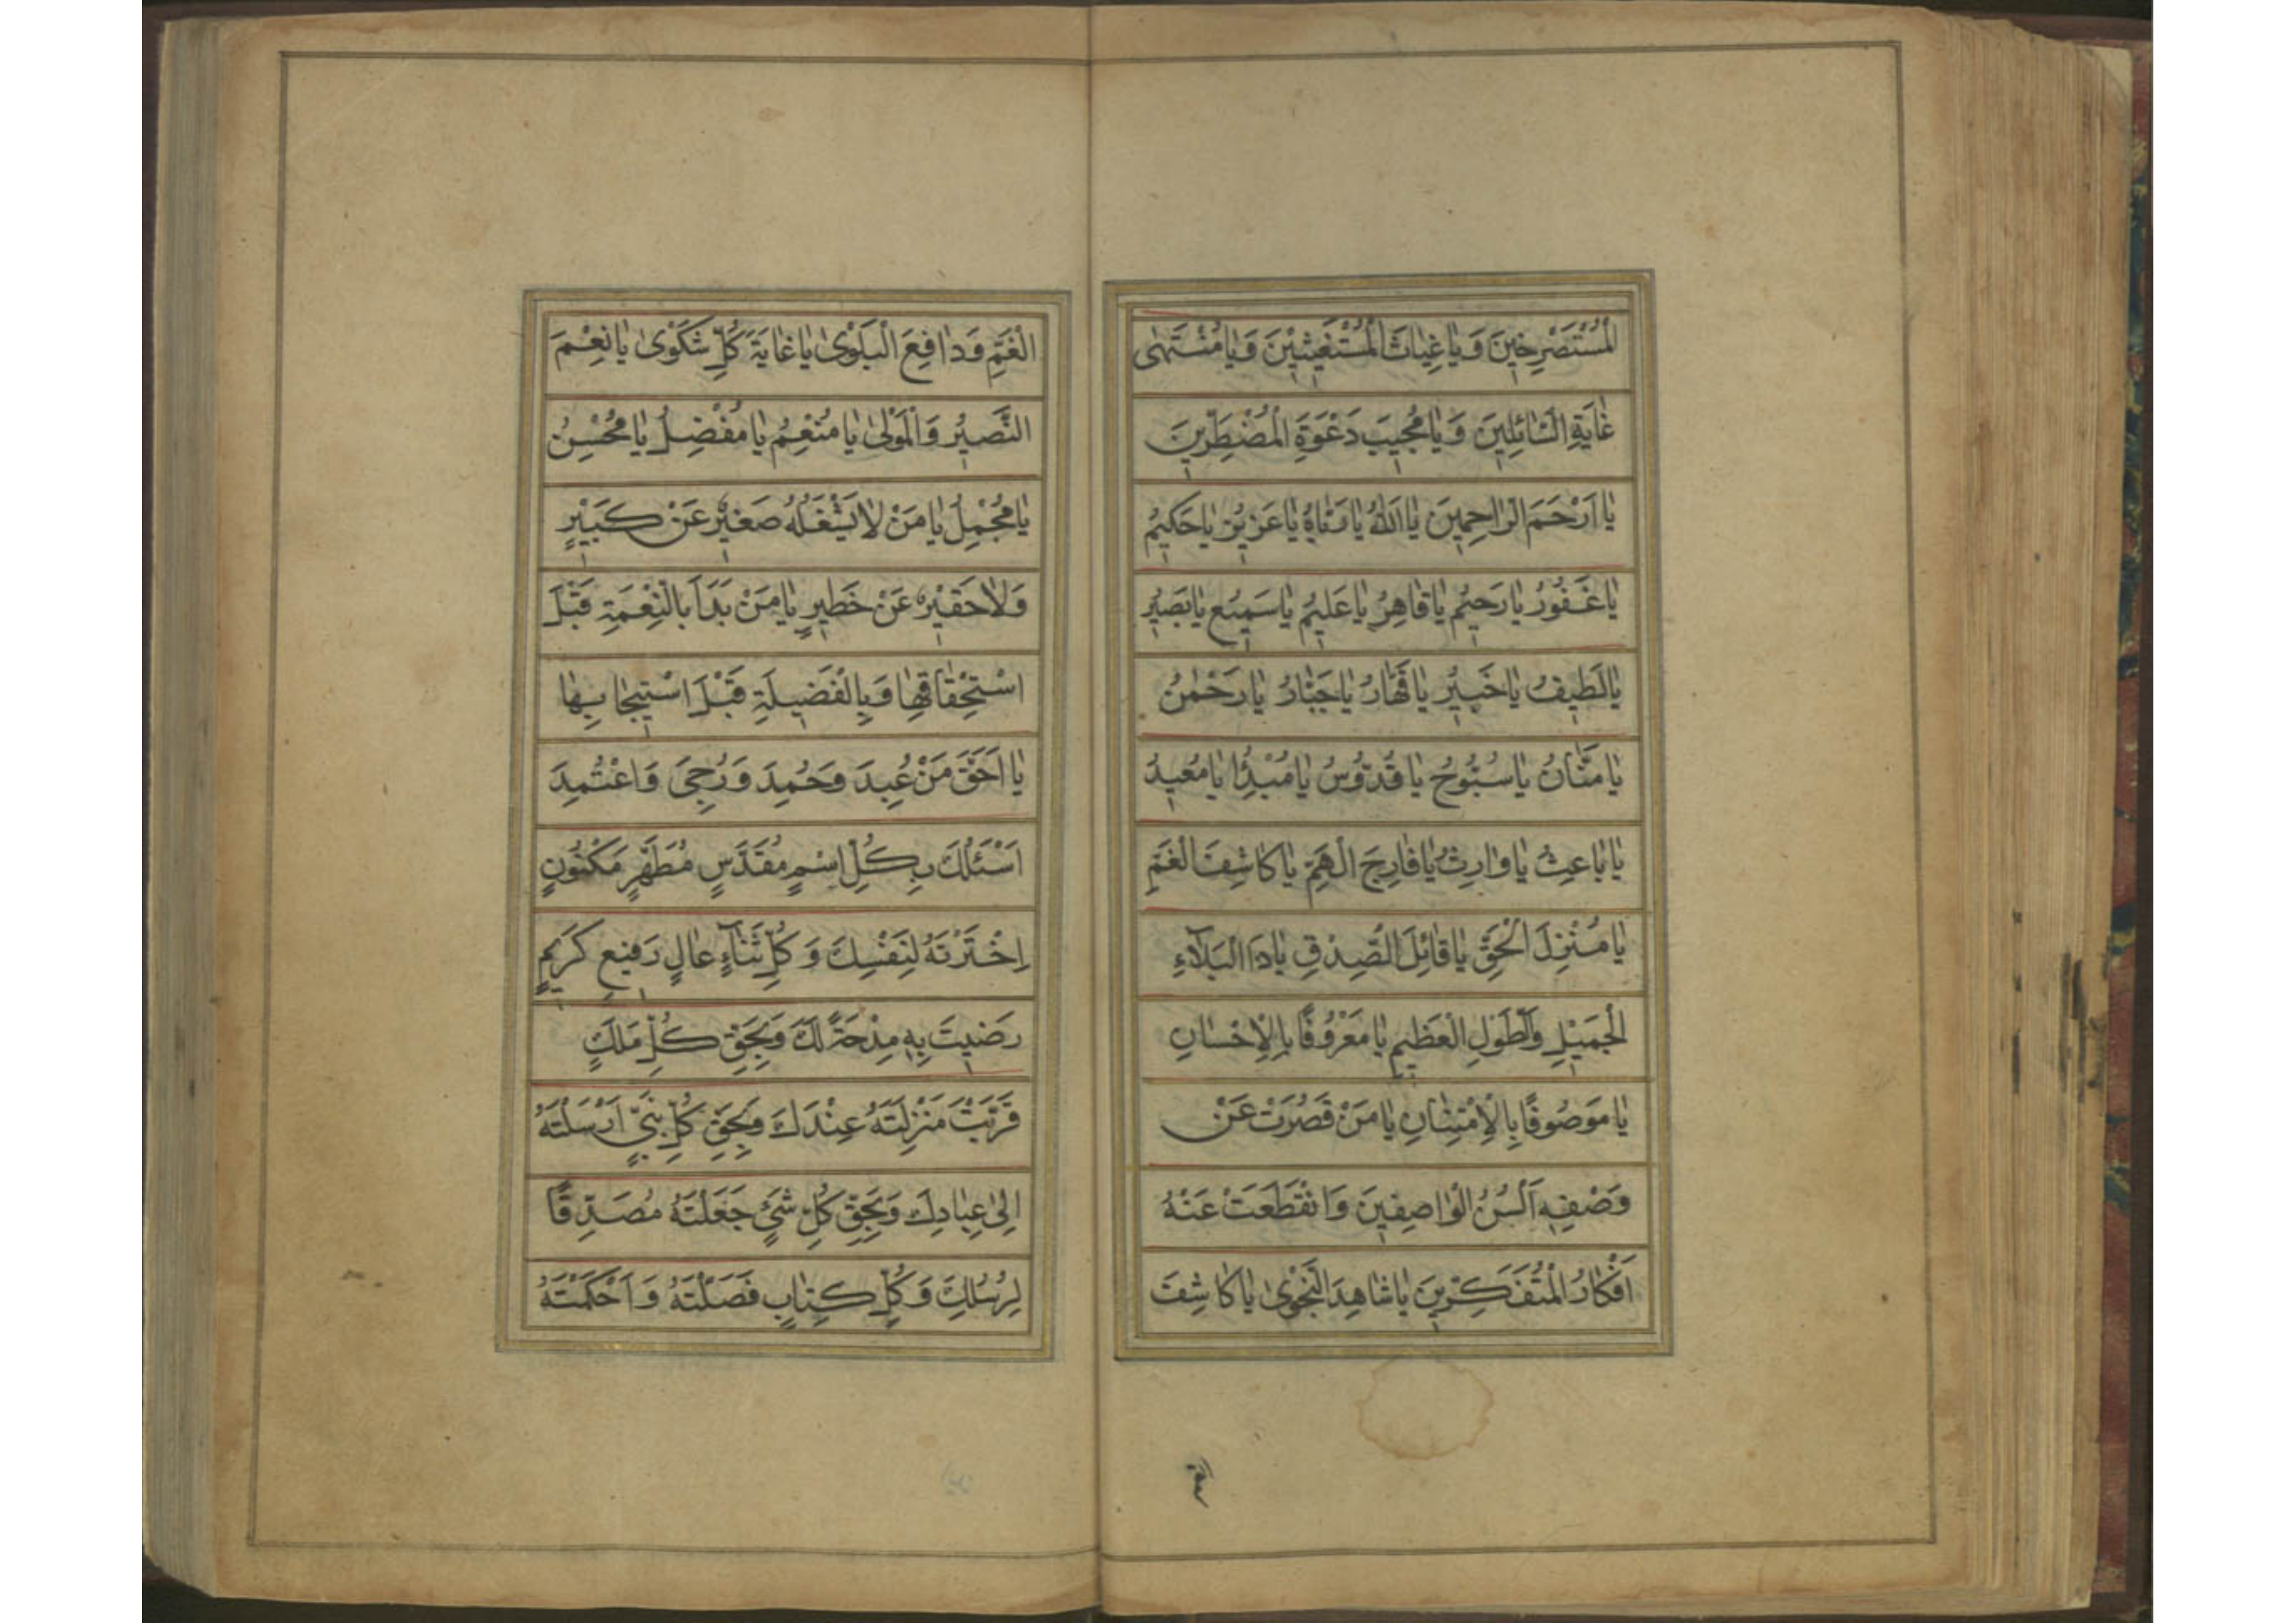 الْمُسْتَصْرِخِينَ وَ يَا غِيَاثَ الْمُسْتَغِيثِينَ وَ يَا مُنْتَهَى
غَايَةِ السَّائِلِينَ وَ يَا مُجِيبَ دَعْوَةِ الْمُضْطَرِّينَ
يَا اَرْحَمَ الرَّاحِمِينَ يَا اَللّٰهُ يَا رَبَّاهُ يَا عَزِيزُ يَا حَكِيمُ
يَا غَفُورُ يَا رَحِيمُ يَا قَاهِرُ يَا عَلِيمُ يَا سَمِيعُ يَا بَصِيرُ
يَا لَطِيفُ يَا خَبِيرُ يَا قَهَّارُ يَا جَبَّارُ يَا رَحْمٰنُ
يَا مَنَّانُ يَا سُبُّوحُ يَا قُدُّوسُ يَا مُبْدِئُ يَا مُعِيدُ
يَا بَاعِثُ يَا وَارِثُ يَا فَارِجَ الْهَمِّ يَا كَاشِفَ الْغَمِّ
يَا مُنْزِلَ الْحَقِّ يَا قَائِلَ الصِّدْقِ يَا ذَا الْبَلَآءِ
الْجَمِيلِ وَ الطَّوْلِ الْعَظِيمِ يَا مَعْرُوفًا بِالْاِحْسَانِ
يَا مَوْصُوفًا بِالْاِمْتِنَانِ يَا مَنْ قَصُرَتْ عَنْ
وَصْفِهِ اَلْسُنُ الْوَاصِفِينَ وَ انْقَطَعَتْ عَنْهُ
اَفْكَارُ الْمُتَفَكِّرِينَ يَا شَاهِدَ النَّجْوٰى يَا كَاشِفَ
الْغَمِّ وَ دَافِعَ الْبَلْوٰى يَا غَايَةَ كُلِّ شَكْوٰى يَا نِعْمَ
النَّصِيرُ وَ الْمَوْلٰى يَا مُنْعِمُ يَا مُفْضِلُ يَا مُحْسِنُ
يَا مُجْمِلُ يَا مَنْ لَا يَشْغَلُهُ صَغِيرٌ عَنْ كَبِيرٍ
وَ لَا حَقِيرٌ عَنْ خَطِيرٍ يَا مَنْ بَدَاَ بِالنِّعْمَةِ قَبْلَ
اسْتِحْقَاقِهَا وَ بِالْفَضِيلَةِ قَبْلَ اسْتِيجَابِهَا
يَا اَحَقَّ مَنْ عُبِدَ وَ حُمِدَ وَ رُجِىَ وَ اعْتُمِدَ
اَسْئَلُكَ بِكُلِّ اسْمٍ مُقَدَّسٍ مُطَهَّرٍ مَكْنُونٍ
اِخْتَرْتَهُ لِنَفْسِكَ وَ كُلِّ ثَنَآءٍ عَالٍ رَفِيعٍ كَرِيمٍ
رَضِيتَ بِهِ مِدْحَةً لَكَ وَ بِحَقِّ كُلِّ مَلَكٍ
قَرُبَتْ مَنْزِلَتُهُ عِنْدَكَ وَ بِحَقِّ كُلِّ نَبِيٍّ اَرْسَلْتَهُ
اِلٰى عِبَادِكَ وَ بِحَقِّ كُلِّ شَيْءٍ جَعَلْتَهُ مُصَدِّقًا
لِرُسُلِكَ وَ كُلِّ كِتَابٍ فَصَّلْتَهُ وَ اَحْكَمْتَهُ